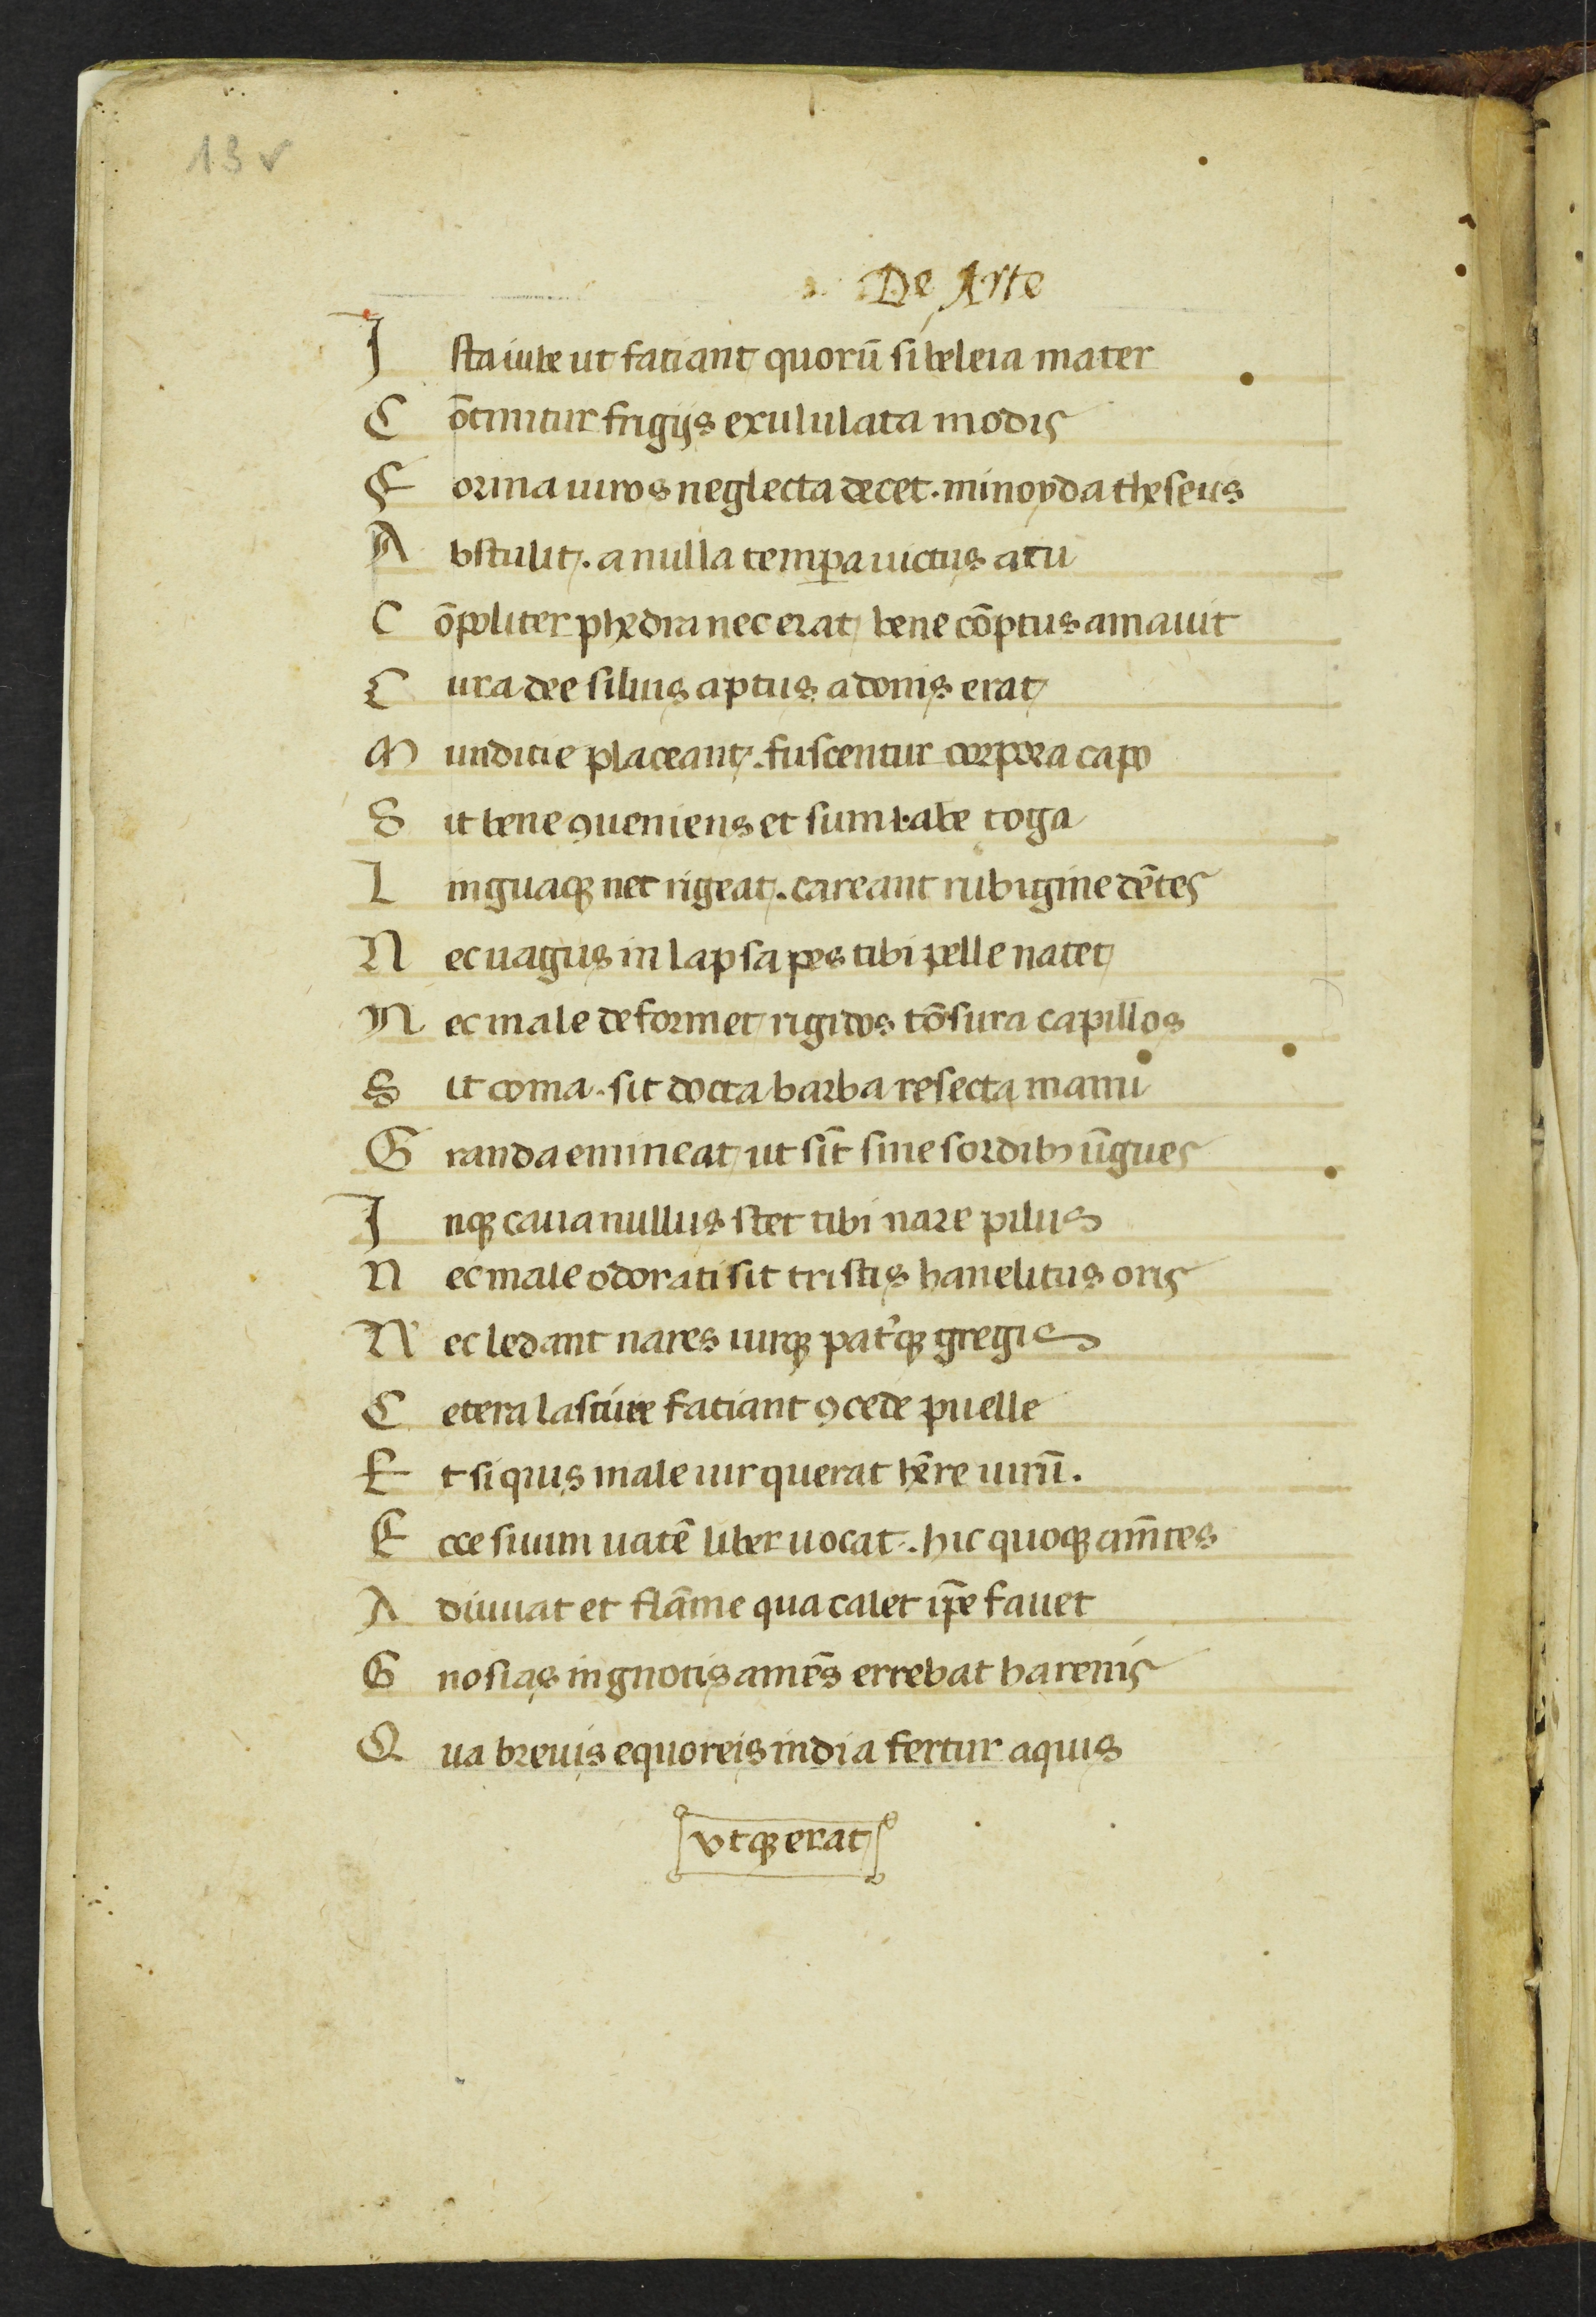 13 v
De Arte
I sta iube ut fatiant quorū sibeleia mater
C ōtinitur frigijs exululata modis
F orma uiros neglecta decet. minoyda theseus
A bstulit. a nulla tempa uictus acu
C ōpoliter phedra nec erat bene cōptus amauit
C ura dee siluis aptus adonis erat
M unditie placeant. fuscentur corpora capo
S it bene ꝯueniens et sum labe toga
L inguaqꝫ nec rigeat. careant rubigine dētes
N ec uagus in lapsa pes tibi pelle natet
N ec male deformet rigidos tōsura capillos
S it coma. sit docta barba resecta manu
G randa emineat ut sīt sine sordibꝫ ūgues
I nqꝫ caua nullus stet tibi nare pilus
N ec male odorati sit tristis hanelitus oris
N ec ledant nares uirqꝫ pat᷑qꝫ gregis
C etera lasciue fatiant ꝯcede puelle
E t si quis male uir querat hēre uirū.
E cce suum uatē liber uocat. hic quoqꝫ am̄tes
A diuuat et flāme qua calet ip̄e fauet
G nosias ingnotis amēs errebat harenis
Q ua breuis equoreis india fertur aquis
vtqꝫ erat